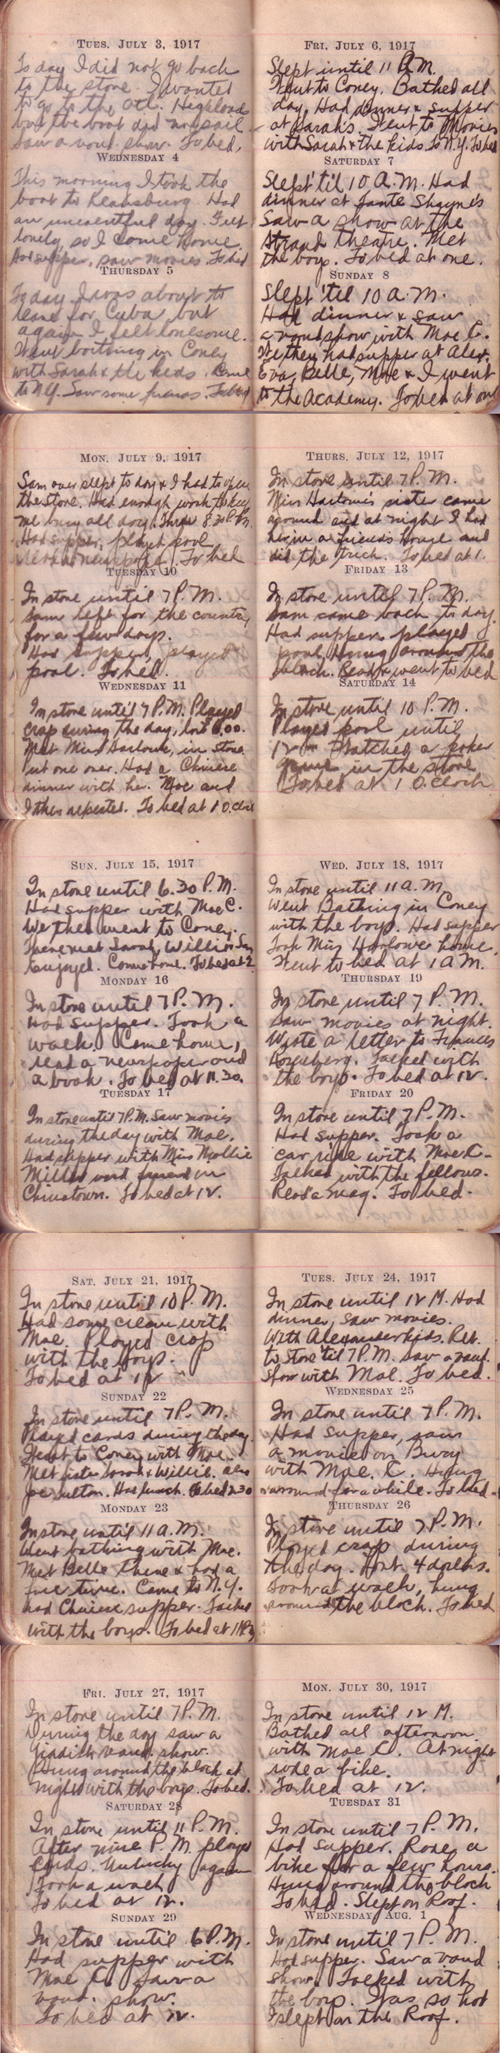 TUES. JULY 3, 1917
To day I did not go back
to the store. I wanted
to go to the Atl. Highland
but the boat did not sail
Saw a vaud. show. To bed.
WEDNESDAY 4
This morning I took the
boat to Keansburg. Had
an uneventful day. Felt
lonely, so I come home.
Had supper, saw movies. To bed
THURSDAY 5
To day I was about to
leave for Cuba, but
again I felt lonesome.
Went bathing in Coney
with Sarah & the kids. Come
to N.Y. Saw some friends. To bed
FRI. JULY 6, 1917
Slept until 11 A.M.
Went to Coney. Bathed all
day. Had dinner & supper
at Sarah's. Went to Movies
with Sarah & the kids. To N.Y. To bed
SATURDAY 7
Slept 'til 10 A.M. Had
dinner at Tante Shayne's
Saw a show at the
Strand theatre. Met
the boys. To bed at one.
SUNDAY 8
Slept 'til 10 a.M.
Had dinner & saw
a vaud show with Moe C.
We then had supper at Alex,
Eva, Belle, Moe & I went
to the Academy. To bed at one
MON. JULY 9, 1917
Sam over slept to day & I had to open
the store. Had enough work to keep
me busy all day, 'til 8.30 P.M.
Had supper, played pool
read a newspaper. To bed
TUESDAY 10
In store until 7 P.M.
Sam left for the country
for a few days.
Had supper, played
pool. To bed.
WEDNESDAY 11
In store until 7 P.M. Played
crap during the day, lost 6.00.
Met Miss Harlowe, in store
put one over. Had a Chinese
dinner with her. Moe and
I then repeated. To bed at 1 O.clock
THURS. JULY 12, 1917
In store until 7 P.M.
Miss Harlowe's sister came
around and at night I had
her in a friends house and
did the trick. To bed at 1.
FRIDAY 13
In store until 7 P.M.
Sam came back to day.
Had supper, played
pool, hung around the
block. Read & went to bed
SATURDAY 14
In store until 10 P.M.
Played pool until
12 Watched a poker
game in the store
To bed at 1 O.clock
SUN. JULY 15, 1917
In store until 6.30 P.M.
Had supper with Moe C.
We then went to Coney.
There met Sarah, Willie
Enjoyed. Come home. To bed at 2
MONDAY 16
In store until 7 P.M.
Had supper. Took a
walk. Come home,
read a newspaper and
a book. To bed at 11.30.
TUESDAY 17
In store until 7 P.M. Saw movies
during the day with Moe.
Had supper with Miss Mollie
Miller and friend in
Chinatown. To bed at 12.
WED. JULY 18, 1917
In store until 11 a.M.
Went Bathing in Coney
with the boys. Had supper
Took Miss Harlowe home.
Went to bed at 1 AM.
THURSDAY 19
In store until 7 P.M.
Saw movies at night.
Wrote a letter to Frances
Talked with
the boys. To bed at 12.
FRIDAY 20
In store until 7 P.M.
Had supper. Took a
car ride with Moe C.
Talked with the fellows.
Read a mag. To bed.
SAT. JULY 21, 1917
In store until 10 P.M.
Had some cream with
Moe. Played crap
with the boys.
To bed at 12
SUNDAY 22
In store until 7 P.M.
Played cards during the day.
Went to Coney with Moe.
Met sister Sarah & Willie. also
Joe Sulton. Had lunch. To bed 2.30
MONDAY 23
In store until 11 a.M.
Went bathing with Moe.
Met Belle there & had a
fine time. Came to N.Y.
had Chinese supper. Talked
with the boys. To bed at 1 A.M.
TUES. JULY 24, 1917
In store until 12 M. Had
dinner, saw movies.
With Alexander kids. Ret.
to store 'til 7 P.M. Saw a vaud.
show with Moe. To bed.
WEDNESDAY 25
In store until 7 P.M.
Had supper, saw
a movie on Bway
with Moe. C. Hung
around for a while. To bed.
THURSDAY 26
In store until 7 P.M.
Played crap during
the day. Lost 4 dolrs.
Took a walk, hung
around the block. To bed
FRI. JULY 27, 1917
In store until 7 P.M.
During the day saw a
Yiddish vaud. show.
Hung around the block at
night with the boys. To bed.
SATURDAY 28
In store until 11 P.M.
After nine P.M. played
cards. Unlucky again
Took a walk
To bed at 12.
SUNDAY 29
In store until 6 P.M.
Had supper with
Moe C. Saw a
vaud. show.
To bed at 12.
MON. JULY 30, 1917
In store until 12 M.
Bathed all afternoon
with Moe C. At night
rode a bike.
To bed at 12.
TUESDAY 31
In store until 7 P.M.
Had supper. Rode a
bike for a few hours.
Hung around the block
To bed. Slept on Roof.
WEDNESDAY AUG. 1
In store until 7 P.M.
Had supper. Saw a vaud
show. Talked with
the boys. Was so hot
I slept on the Roof.